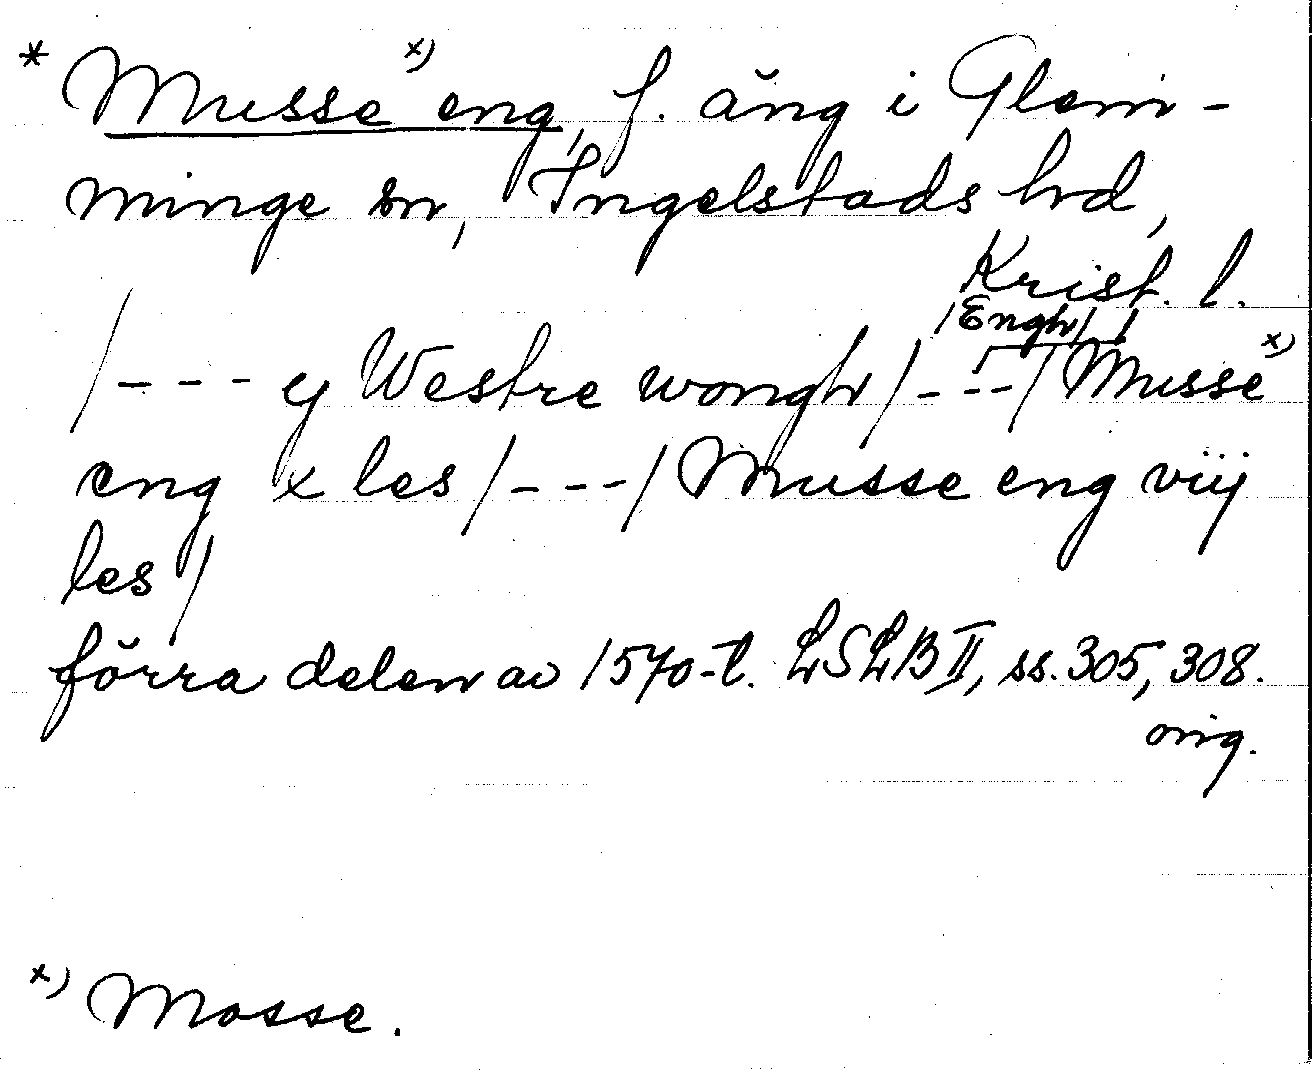 * Musse x) eng, f. äng i Glem-
minge sn, Ingelstads hd,
Krist. l.
/Engh/
/--- y Westre wongh/---/ Musse x)
eng x les /---/ Musse eng viij
les /
förra delen av 1570-t. LSLB II, ss. 305, 308.
orig.
x) Mosse.